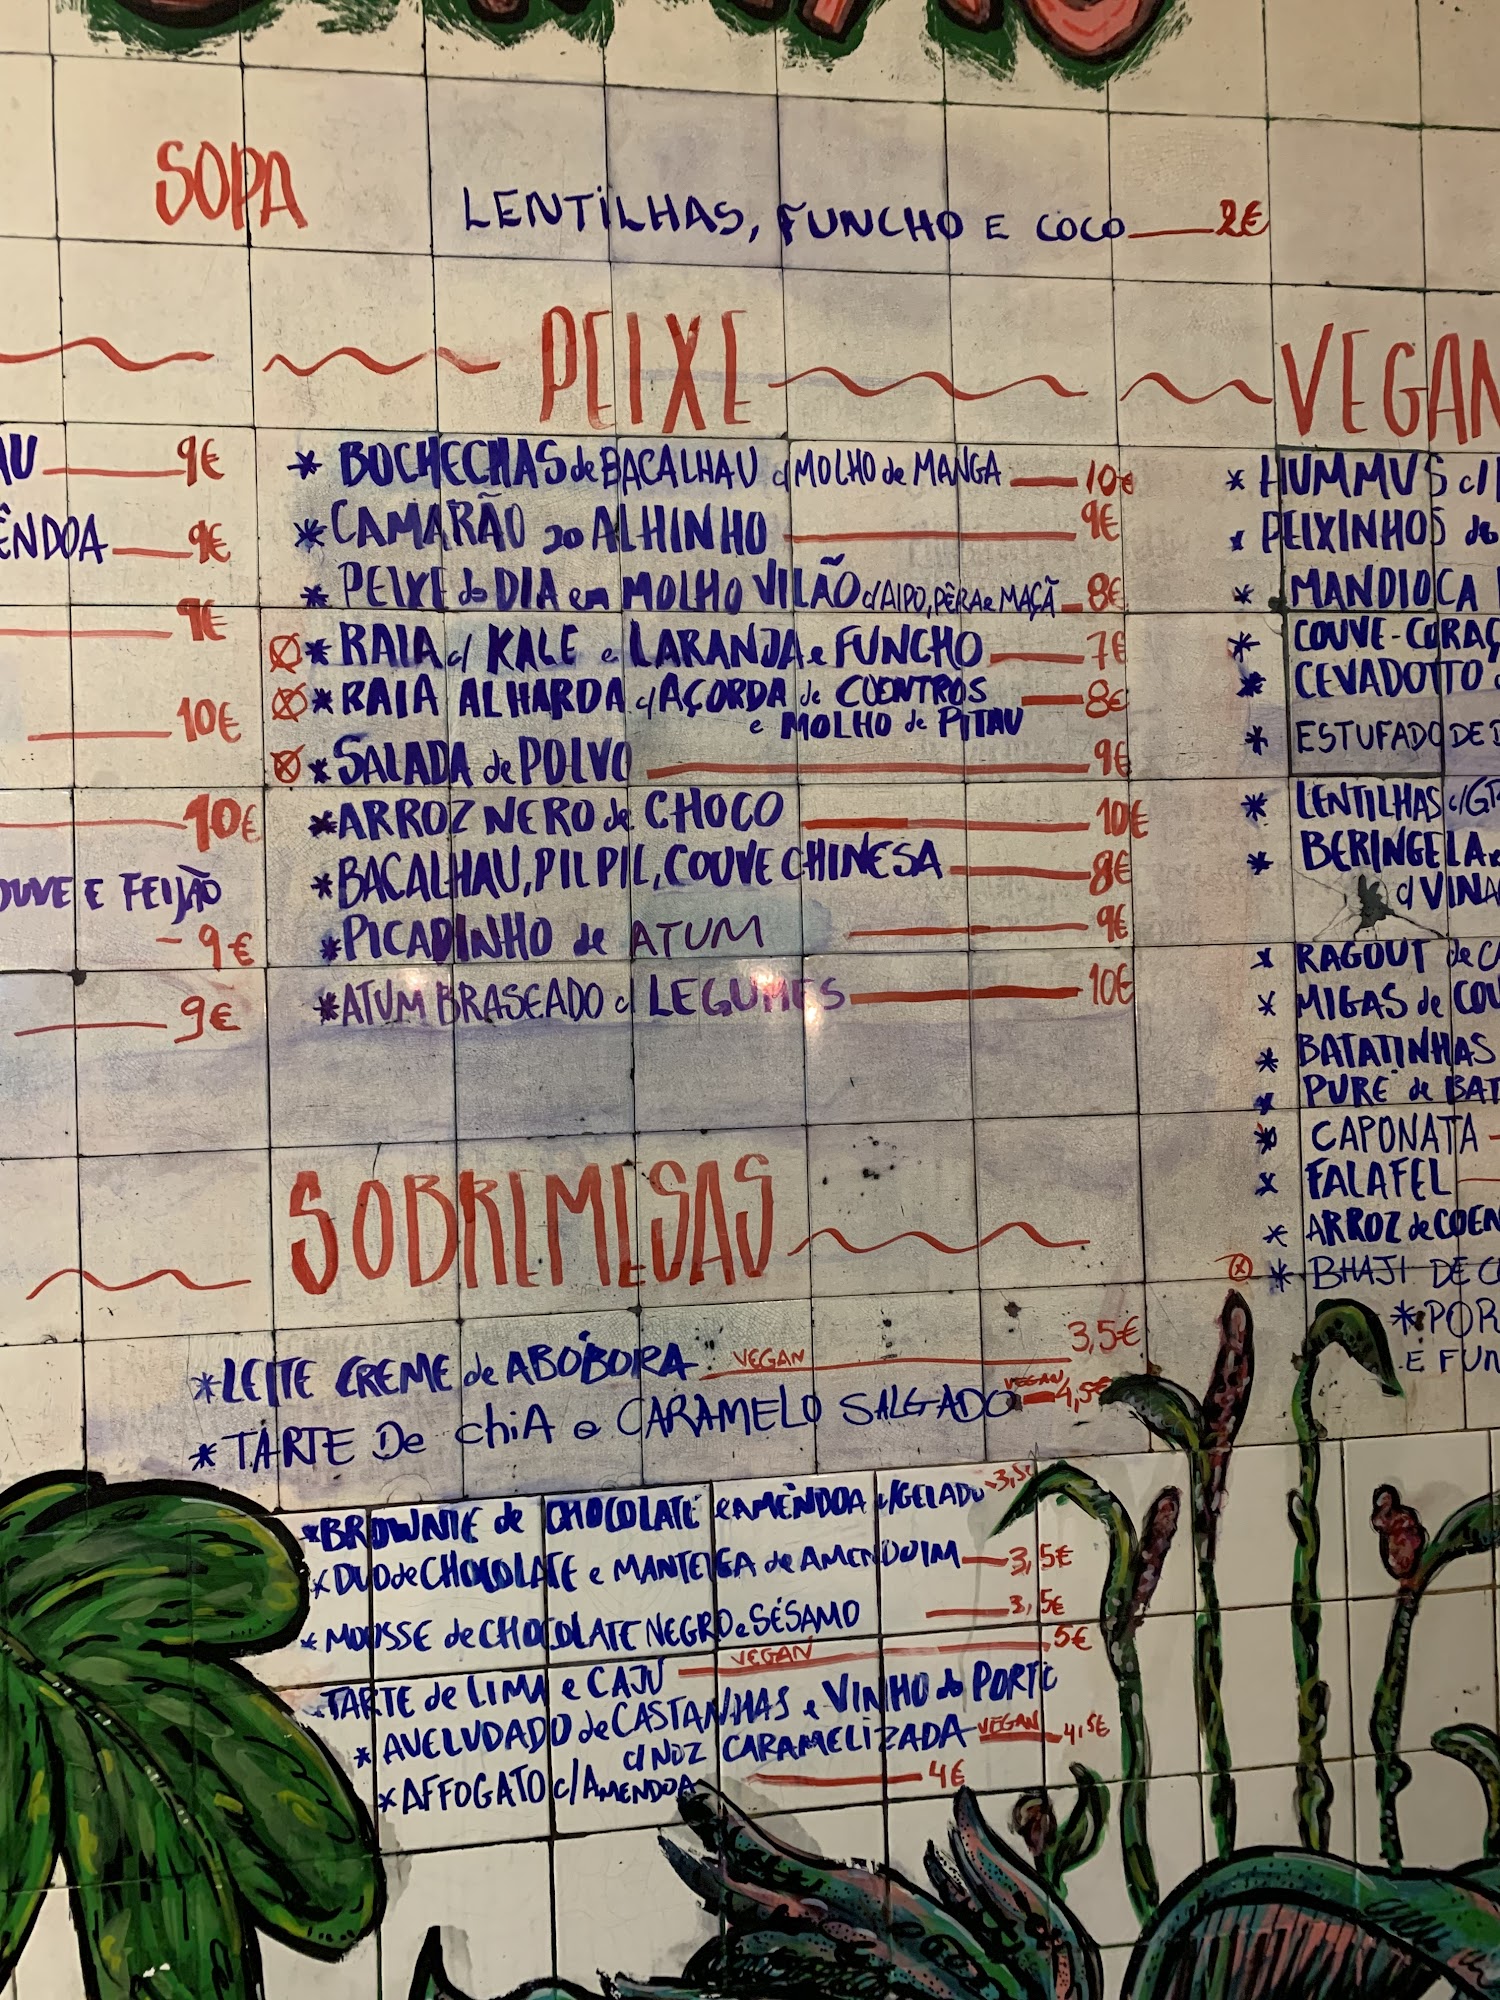 SOPA
LENTILHAS, FUNCHO E COCO 2€
9€
ÊNDOA 9€
9€
10€
10€
E FEIJÃO
- 9€
9€
PEIXE
* BOCHECHAS de BACALHAU c/ MOLHO de MANGA 10€
* CAMARÃO ao ALHINHO 9€
* PEIXE do DIA em MOLHO VILÃO c/ AIPO, PÊRA e MAÇÃ 8€
* RAIA c/ KALE e LARANJA e FUNCHO 7€
* RAIA ALHARDA c/ AÇORDA de COENTROS 8€
e MOLHO de PITAU
* SALADA de POLVO 9€
* ARROZ NERO de CHOCO 10€
* BACALHAU, PIL PIL, COUVE CHINESA 8€
* PICADINHO de ATUM 9€
* ATUM BRASEADO c/ LEGUMES 10€
VEGAN
* HUMMUS c/
* PEIXINHOS da
* MANDIOCA
* COUVE-CORAÇ
* CEVADOTTO
* ESTUFADO DE
* LENTILHAS c/
* BERINGELA
c/ VINA
* RAGOUT de
* MIGAS de COU
* BATATINHAS
* PURÉ de BAT
* CAPONATA
* FALAFEL
* ARROZ de COEN
* BHAJI DE
* POR
E FUN
SOBREMESAS
* LEITE CREME de ABÓBORA VEGAN 3,5€
* TARTE De chiA e CARAMELO SALGADO VEGAN 4,5€
* BROWNIE de CHOCOLATE e AMÊNDOA c/ GELADO 3,5€
* DUO de CHOCOLATE e MANTEIGA de AMENDOIM 3,5€
* MOUSSE de CHOCOLATE NEGRO e SÉSAMO 3,5€
TARTE de LIMA e CAJU VEGAN 5€
* AVELUDADO de CASTANHAS e VINHO do PORTO
c/ NOZ CARAMELIZADA VEGAN 4,5€
* AFFOGATO c/ AMENDOA 4€